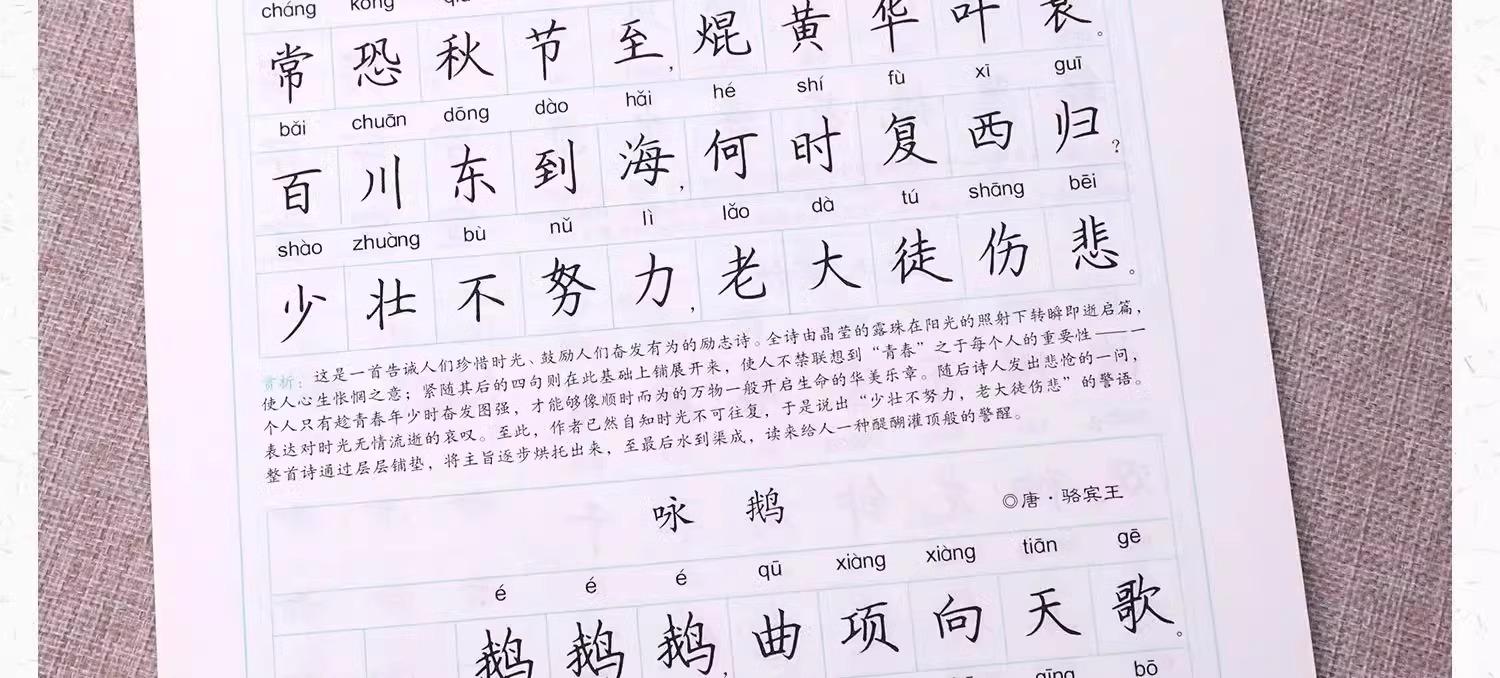 cháng kǒng
常恐秋节至，焜黄华叶衰。
bǎi chuān dōng dào hǎi hé shí fù xī guī
百川东到海，何时复西归？
shào zhuàng bù nǔ lì lǎo dà tú shāng bēi
少壮不努力，老大徒伤悲。
赏析：这是一首告诫人们珍惜时光、鼓励人们奋发有为的励志诗。全诗由晶莹的露珠在阳光的照射下转瞬即逝启篇，
使人心生怅惘之意；紧随其后的四句则在此基础上铺展开来，使人不禁联想到“青春”之于每个人的重要性——一
个人只有趁青春年少时奋发图强，才能够像顺时而为的万物一般开启生命的华美乐章。随后诗人发出悲怆的一问，
表达对时光无情流逝的哀叹。至此，作者已然自知时光不可往复，于是说出“少壮不努力，老大徒伤悲”的警语。
整首诗通过层层铺垫，将主旨逐步烘托出来，至最后水到渠成，读来给人一种醍醐灌顶般的警醒。
咏鹅
◎唐·骆宾王
é é é qū xiàng xiàng tiān gē
鹅鹅鹅，曲项向天歌。
qīng bō